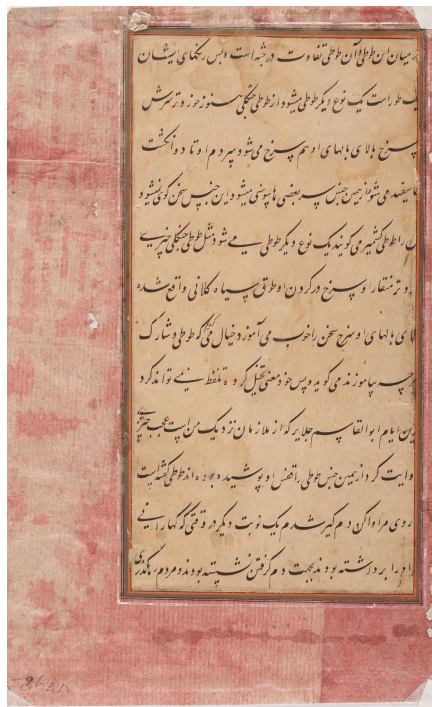 میان این طوطی و آن طوطی تفاوت در جثه است و بس رنگهای ایشان
یک طور است یک نوع دیگر طوطی میشود از طوطی جنگلی هنوز خوردتر سرش
سرخ بالای بالهای او هم سرخ می شود پر دم او تا دو انگشت
سفید می شود از همین جنس سر بعضی ها سوسنی میشود این جنس سخن گوی نمیشود
را طوطی کشمیر می گویند یک نوع دیگر طوطی می شود مثل طوطی جنگلی چیزی
تر منقار او سرخ در گردن او طوق سیاه کلانی واقع شده
بالهای او سرخ سخن را خوب می آموزد خیال می کردیم که طوطی و شارک
هر چه بیاموزند می گوید و پس خود معنی تخیل کرده تلفظ نمی تواند کرد
این ایام ابوالقاسم جلایر که از ملازمان نزدیک من است عجب چیزی
روایت کرد از همین جنس طوطی را قفس او پوشیده بوده اند طوطی گفته است
روی مرا وا کن دم گیر شدم یک نوبت دیگر در وقتی که کهارانی
او را برداشته بودند بجهت دم گرفتن نشسته بودند و مردم میگذری